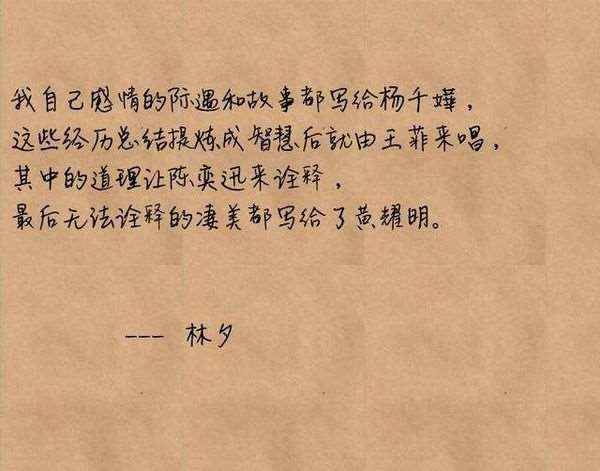 我自己感情的际遇和故事都写给杨千嬅，
这些经历总结提炼成智慧后就由王菲来唱，
其中的道理让陈奕迅来诠释，
最后无法诠释的凄美都写给了黄耀明。
--- 林夕